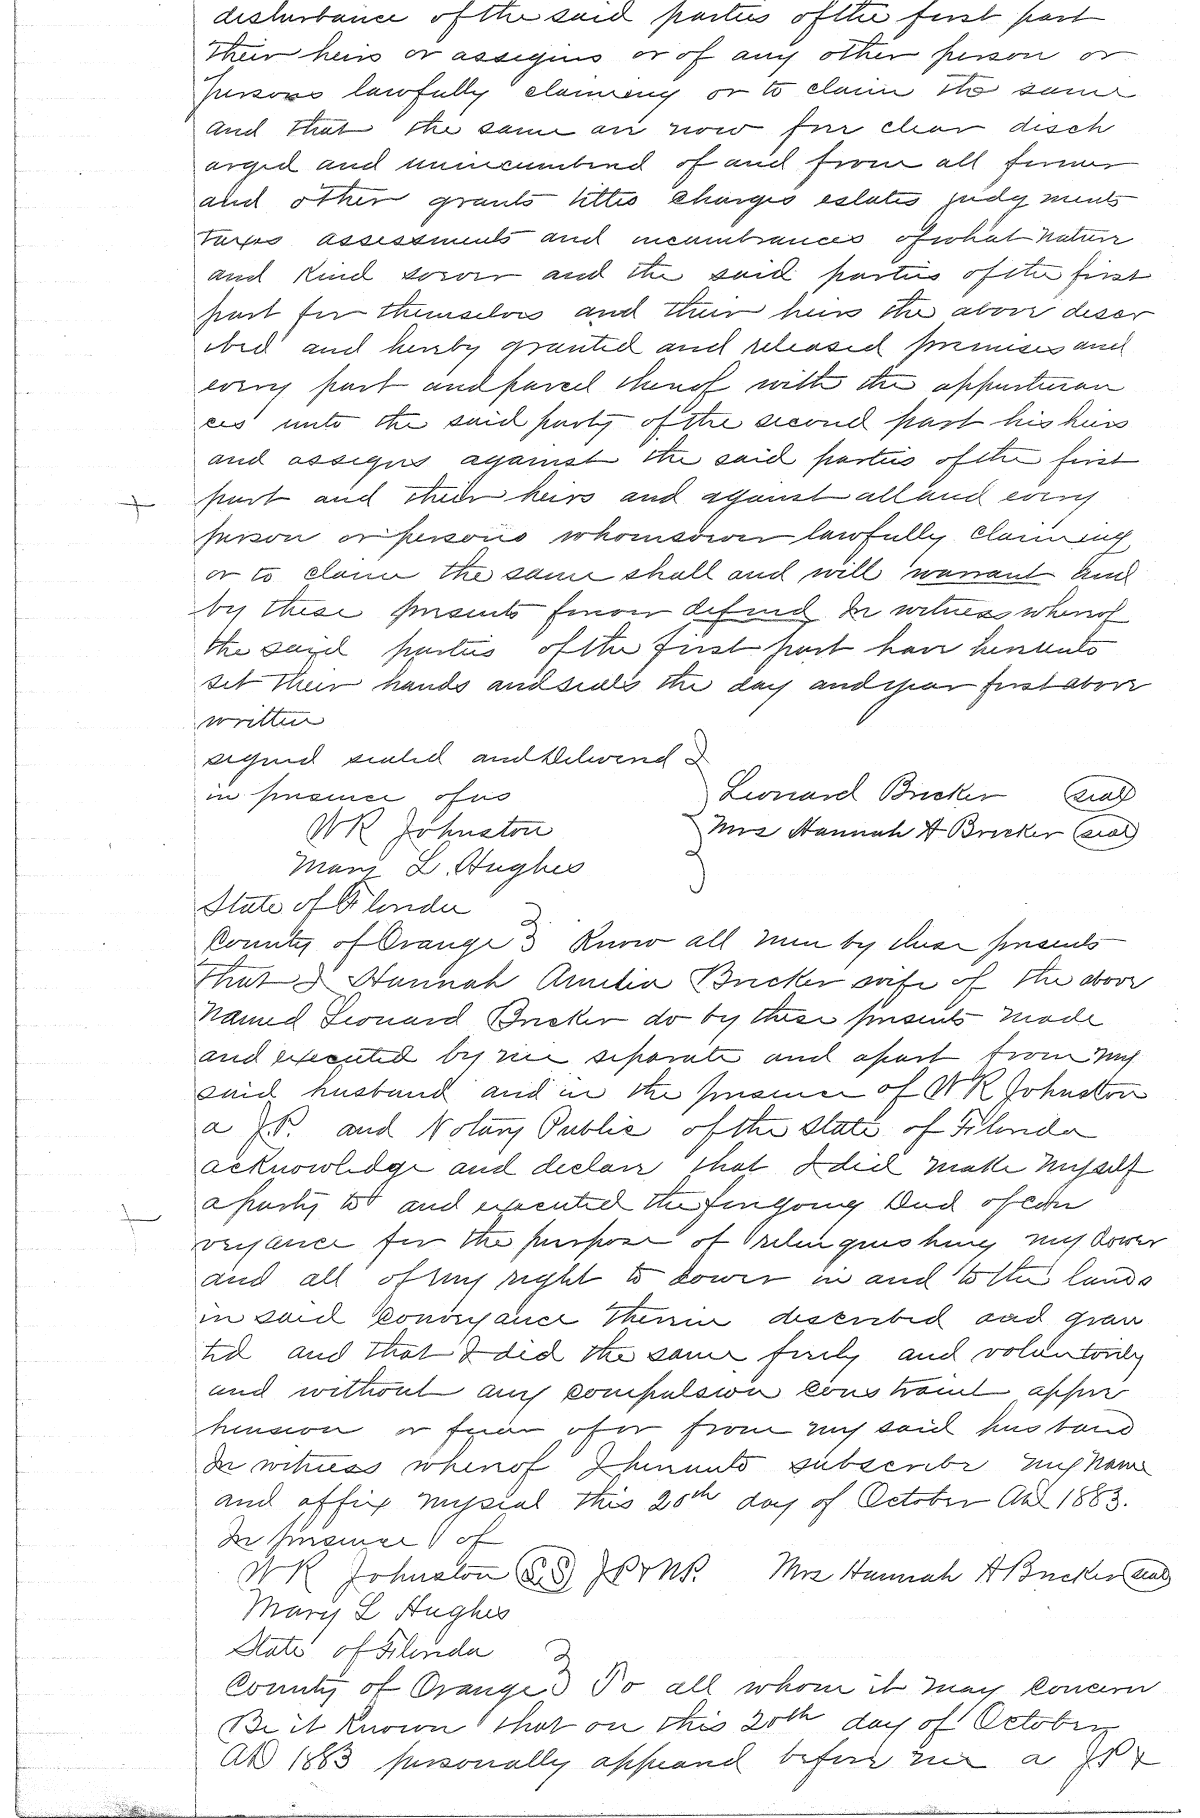 disturbance of the said parties of the first part
their heirs or assigins or of any other person or
persons lawfully claiming or to claim the same
and that the same are now free clear disch
arged and unincumbered of and from all former
and other grants titles charges estates judgments
taxes assessments and incumbrances of what nature
and kind soever and the said parties of the first
part for themselves and their heirs the above descr
ibed and hereby granted and released premises and
every part and parcel thereof with the appurtenan
ces unto the said party of the second part his heirs
and assigns against the said parties of the first
part and their heirs and against all and every
person or persons whomsoever lawfully claiming
or to claim the same shall and will warrant and
by these presents forever defend In witness whereof
the said parties of the first part have hereunto
set their hands and seals the day and year first above
written
signed sealed and Delivered }
in presence of us } Leonard Bricker (seal)
WR Johnston } Mrs Hannah A Bricker (seal)
Mary L. Hughes }
State of Florida
County of Orange } Know all men by these presents
that I Hannah Amelia Bricker wife of the above
named Leonard Bricker do by these presents made
and executed by me separate and apart from my
said husband and in the presence of WR Johnston
a J.P. and Notary Public of the State of Florida
acknowledge and declare that I did make myself
a party to and executed the foregoing Deed of con
veyance for the purpose of relinquishing my Dower
and all of my right to dower in and to the lands
in said conveyance therein described and gran
ted and that I did the same freely and voluntarily
and without any compulsion constraint appre
hension or fear of or from my said husband
In witness whereof I hereunto subscribe my name
and affix my seal this 20th day of October AD 1883.
In presence of
WR Johnston (S.S) JP & NP. Mrs Hannah A Bricker (seal)
Mary L Hughes
State of Florida
County of Orange } To all whom it may concern
Be it known that on this 20th day of October
AD 1883 personally appeared before me a JP &